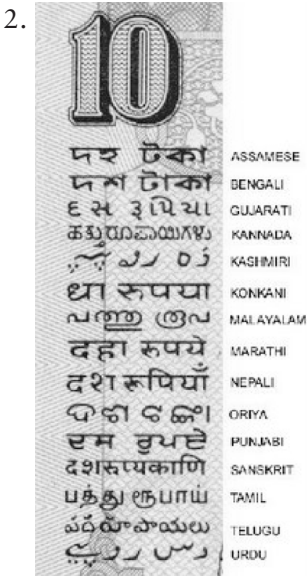 2.
10
দহ টকা ASSAMESE
দশ টাকা BENGALI
દસ રૂપિયા GUJARATI
ಹತ್ತು ರೂಪಾಯಿಗಳು KANNADA
KASHMIRI
धा रुपया KONKANI
പത്തു രൂപ MALAYALAM
दहा रुपये MARATHI
दश रुपियाँ NEPALI
ଦଶ ଟଙ୍କା ORIYA
ਦਸ ਰੁਪਏ PUNJABI
दशरूप्यकाणि SANSKRIT
பத்து ரூபாய் TAMIL
పది రూపాయలు TELUGU
دس روپیے URDU